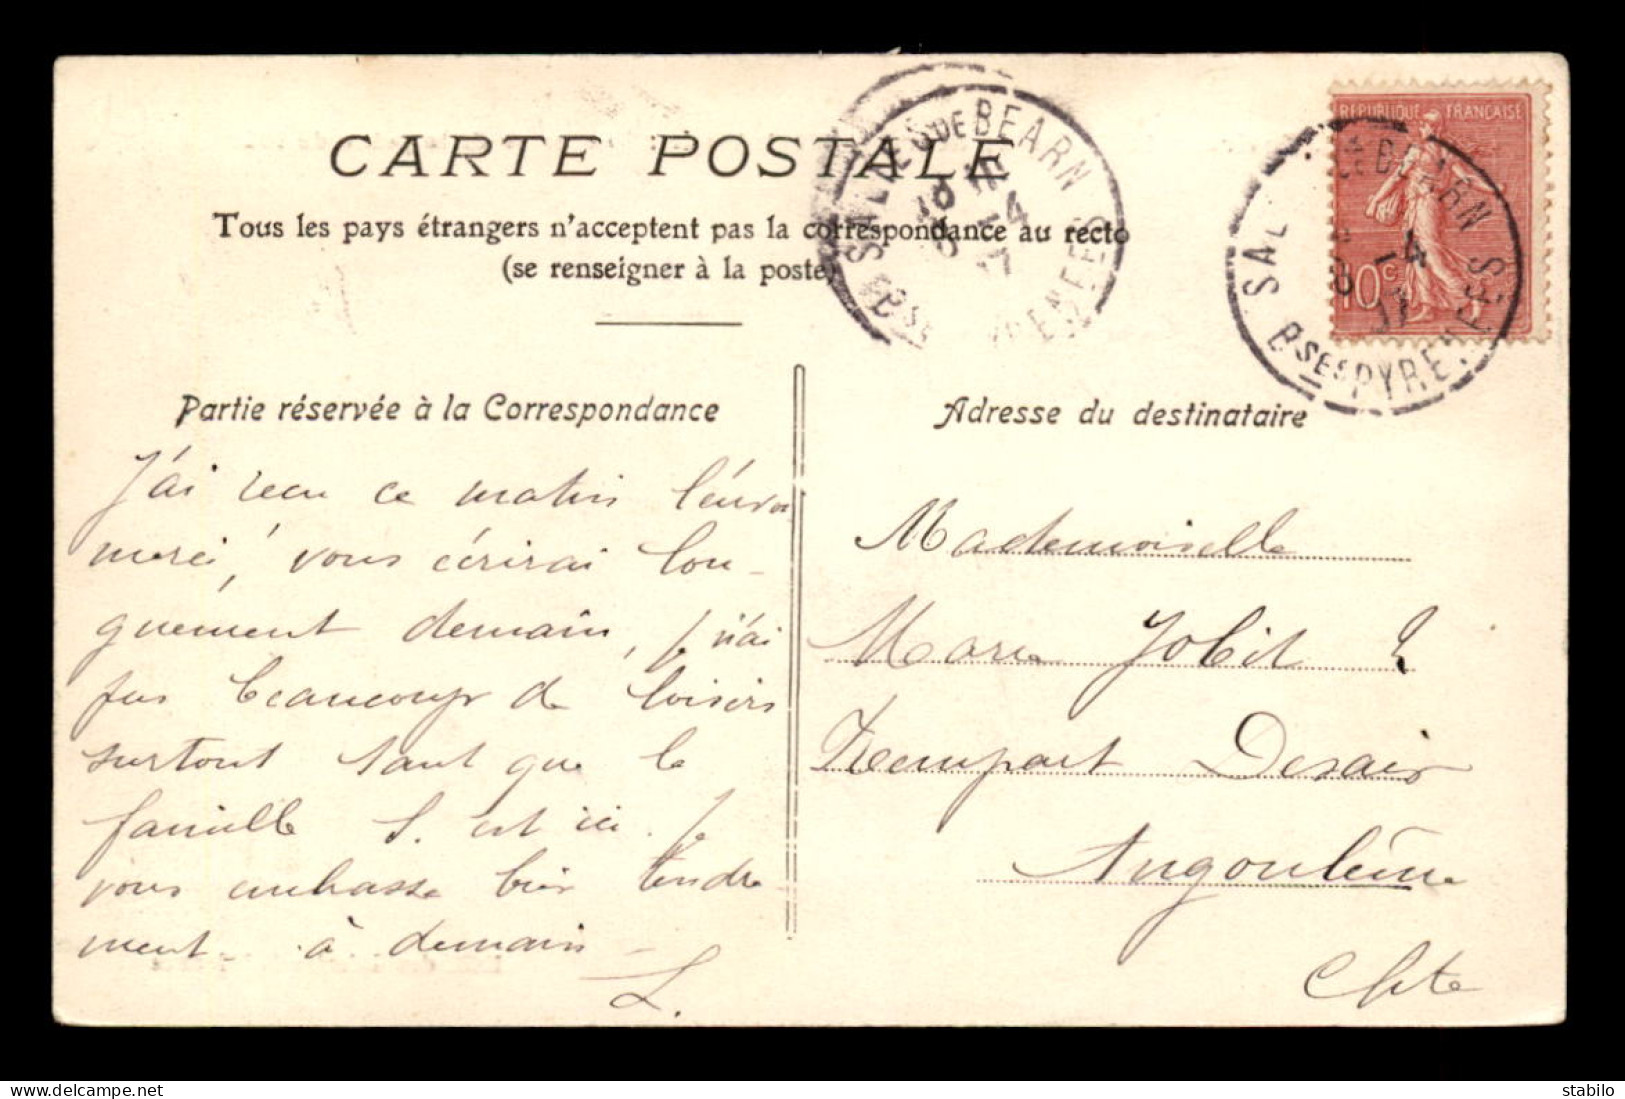 CARTE POSTALE
Tous les pays étrangers n'acceptent pas la correspondance au recto
(se renseigner à la poste)
SALIES DE BEARN
BSES PYRENEES
REPUBLIQUE FRANÇAISE
10c
DE BEARN
BSES PYRENEES
Partie réservée à la Correspondance
J'ai recu ce matin
merci, vous écrirai lon-
guement demain, je n'ai
pas beaucoup de loisirs
surtout tant que la
famille S. est ici. Je
vous embrasse bien tendre
ment - à demain -
L.
Adresse du destinataire
Mademoiselle
Marie Jobit
Rempart Desaix
Angoulême
Chte
www.delcampe.net
stabilo